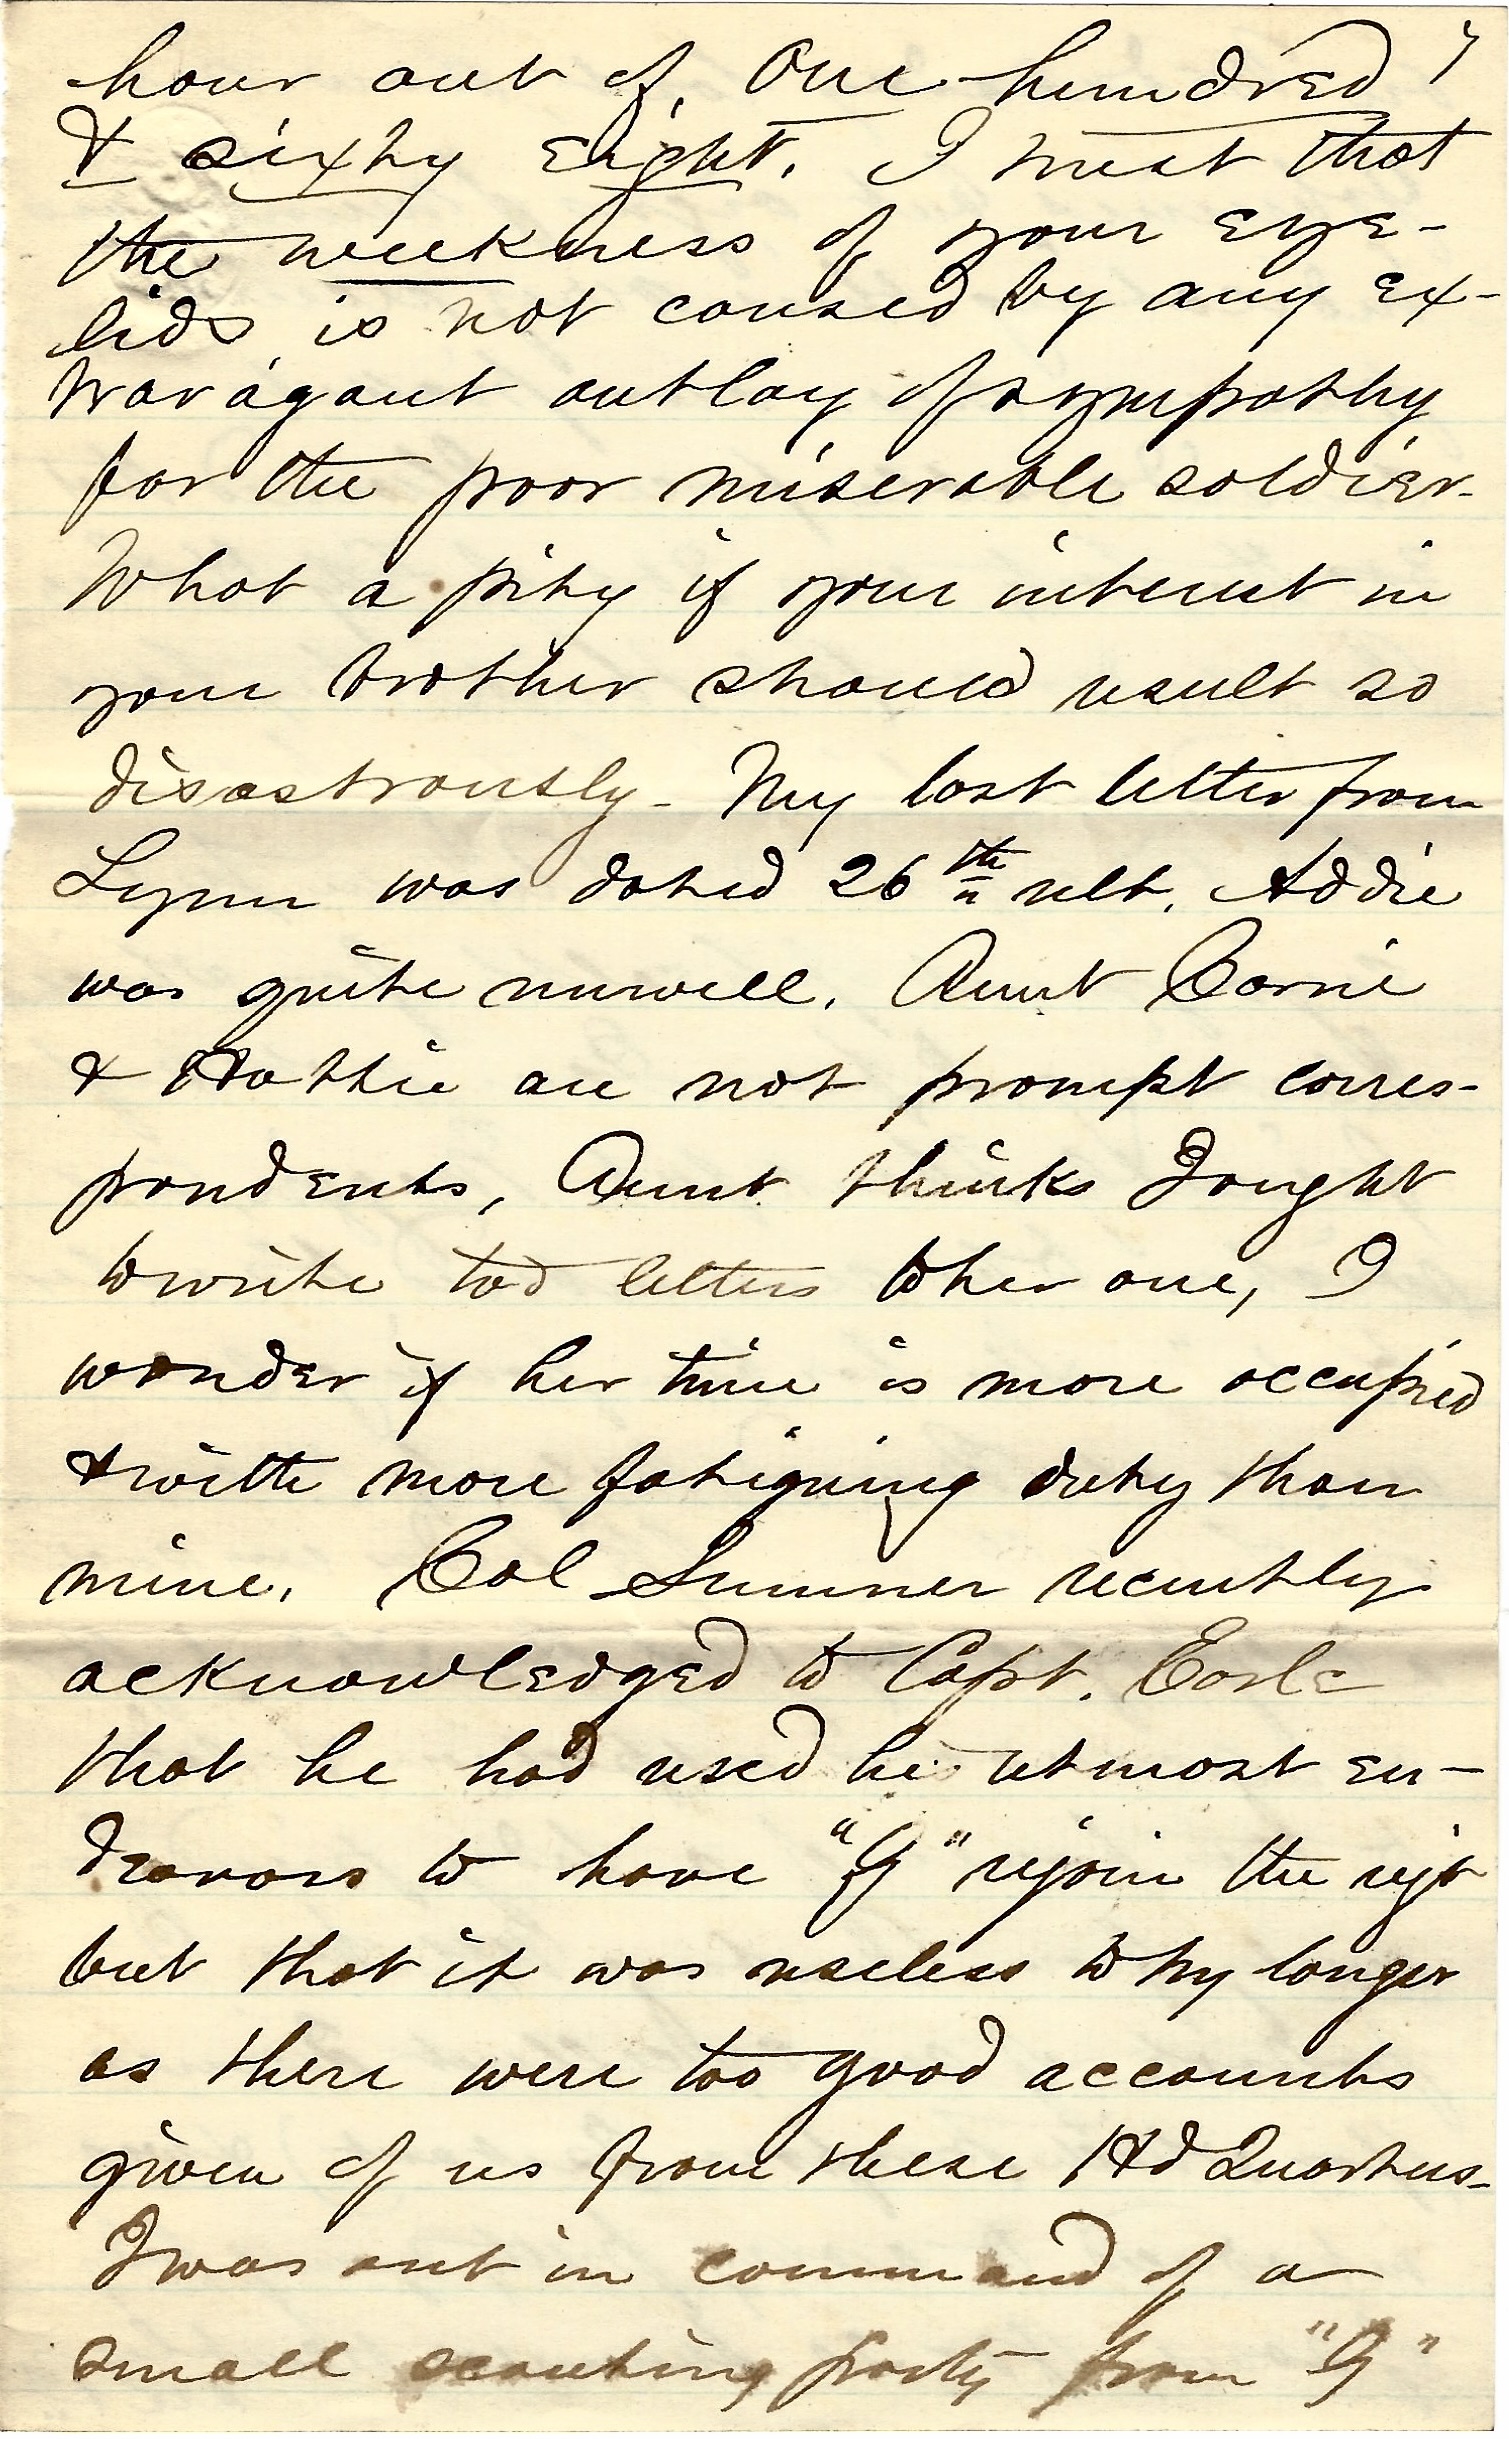 hour out of, One hundred ?
& sixty eight. I trust that
the weekness of your eye-
lids, is not caused by any ex-
travagant outlay of sympathy
for the poor miserable soldier-
What a pity if your interest in
your brother should result so
disastrously- My last letter from
Lynn was dated 26th ult. Addie
was quite unwell. Aunt Carrie
& Hattie are not prompt corres-
pondents, Aunt thinks I ought
to write two letters to her one, I
wonder if her time is more occupied
& with more fatiguing duty than
mine. Col Sumner recently
acknowledged to Capt. Earle
that he had used his utmost en-
deavors to have "G" rejoin the regt
but that it was useless to try longer
as there were too good accounts
given of us from these Hd Quarters-
I was out in command of a
small scouting party from "G"